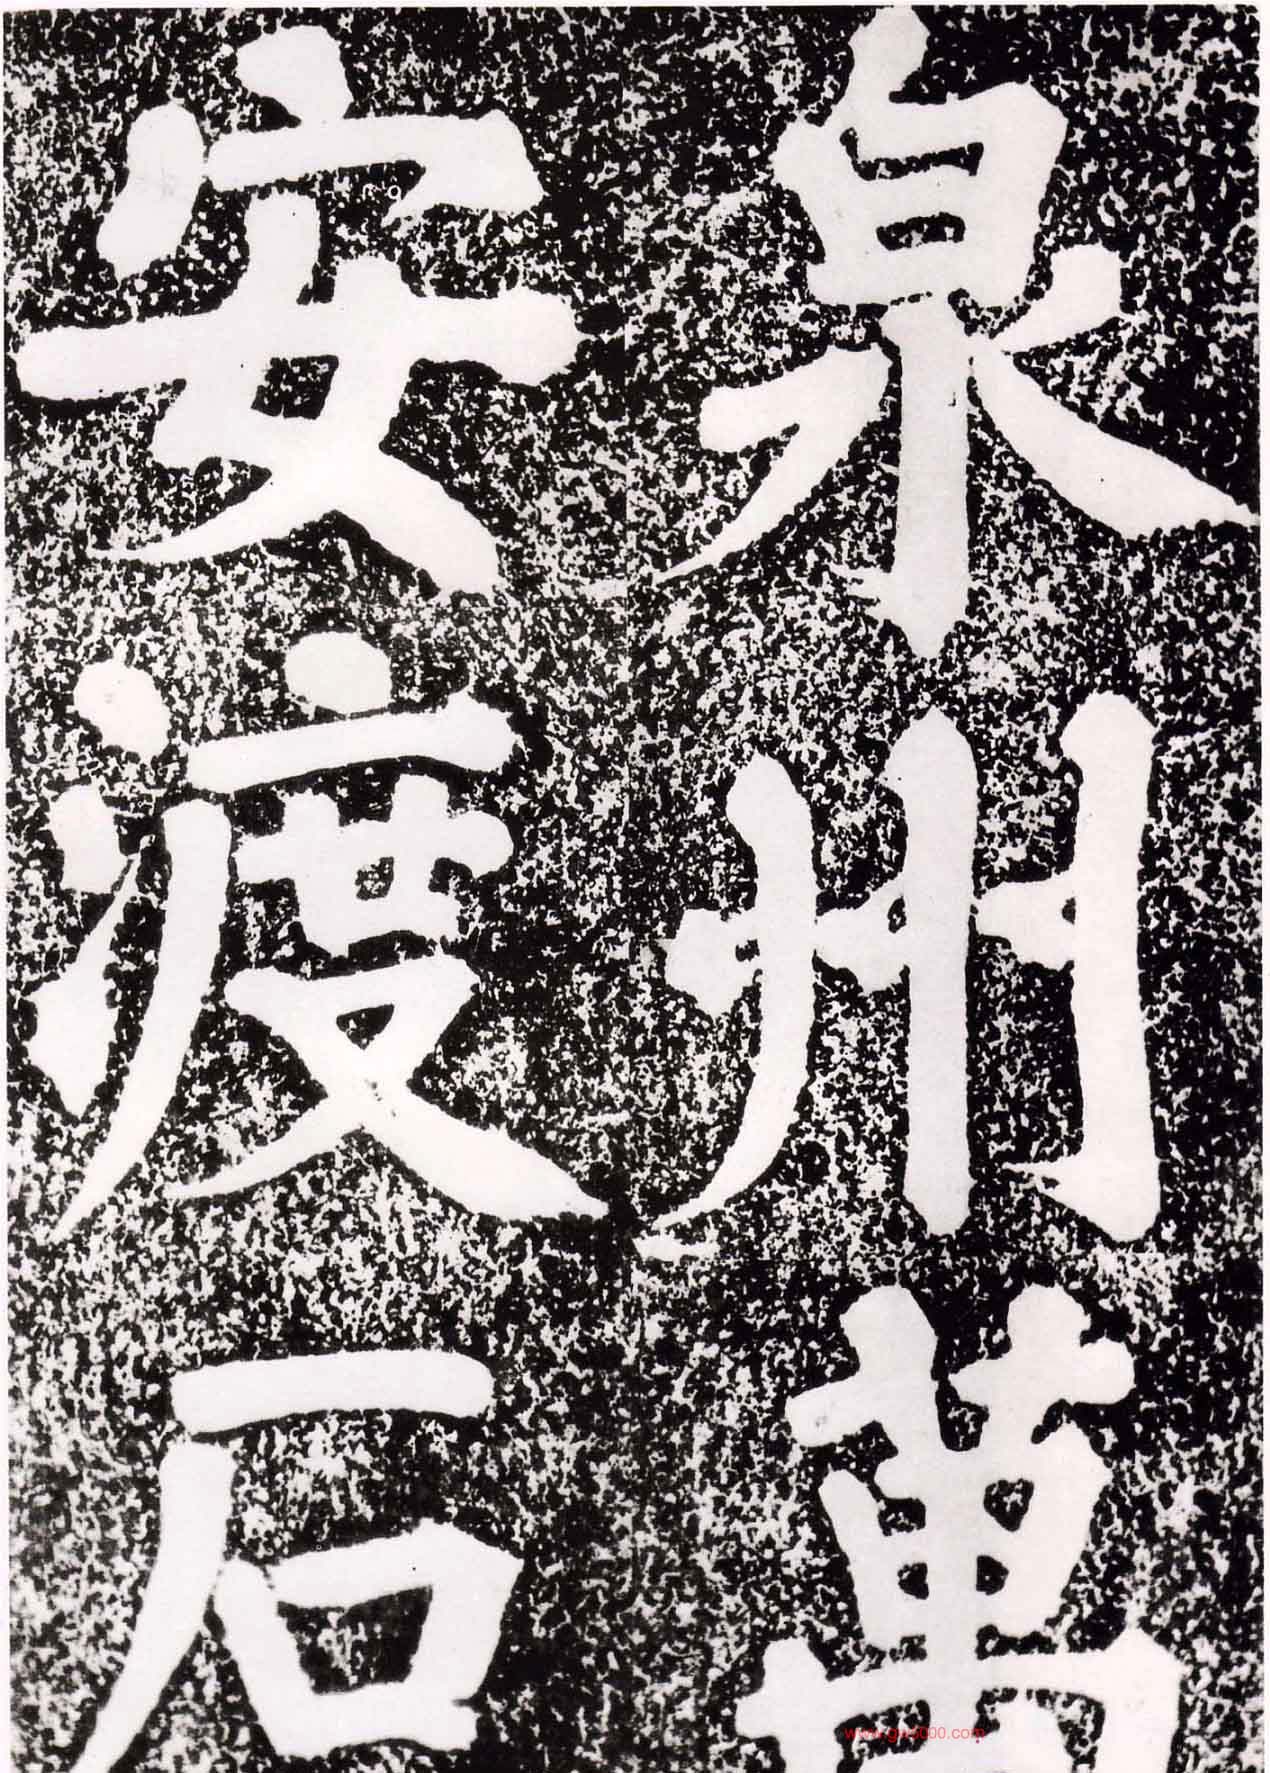 泉州萬
安渡石
www.gw1000.com